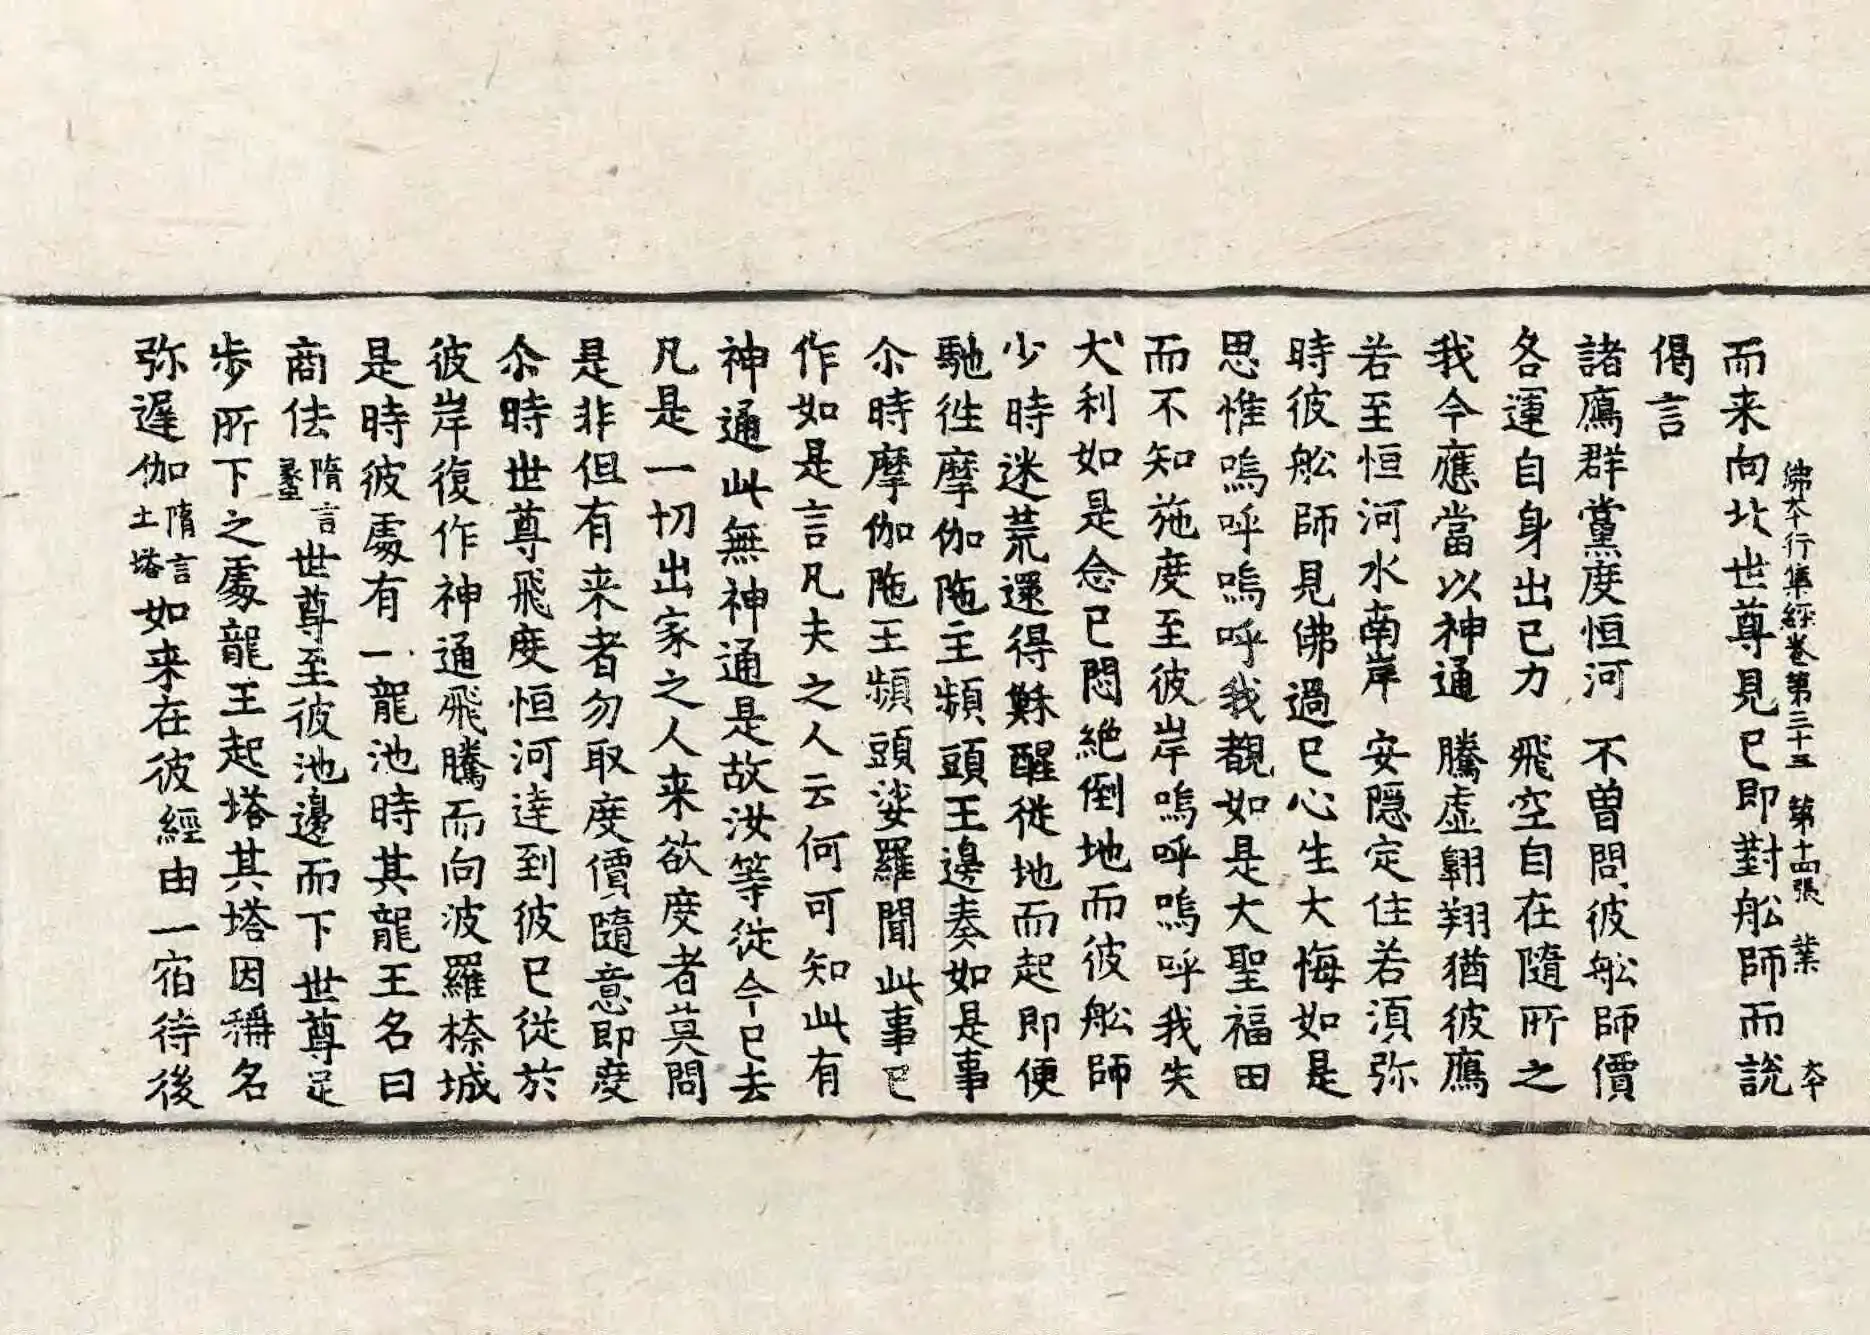 佛本行集經卷第三十三　第十四張　業　大
而来向北世尊見已即對舩師而說
偈言
諸鴈群黨度恒河　不曽問彼舩師價
各運自身出已力　飛空自在隨所之
我今應當以神通　騰虛翺翔猶彼鴈
若至恒河水南岸　安隱定住若湏弥
時彼舩師見佛過已心生大悔如是
思惟嗚呼嗚呼我覩如是大聖福田
而不知施度至彼岸嗚呼嗚呼我失
大利如是念已悶絶倒地而彼舩師
少時迷荒還得穌醒從地而起即便
馳徃摩伽陁主頻頭王邊奏如是事
尒時摩伽陁王頻頭娑羅聞此事已
作如是言凡夫之人云何可知此有
神通此無神通是故汝等從今已去
凡是一切出家之人来欲度者莫問
是非但有来者勿取度價隨意即度
尒時世尊飛度恒河達到彼已從於
彼岸復作神通飛騰而向波羅㮈城
是時彼處有一龍池時其龍王名曰
商佉隋言蠡世尊至彼池邊而下世尊足
步所下之處龍王起塔其塔因稱名
弥遲伽隋言土塔如来在彼經由一宿待後